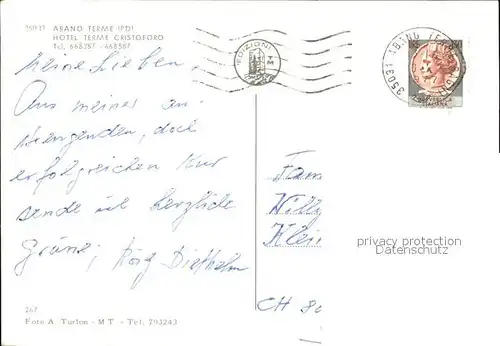 35031 ABANO TERME (PD)
HOTEL TERME CRISTOFORO
Tel. 668287 - 668587
EDIZIONI A.T.M.
35031 ABANO TERME
REPUBBLICA
ITALIANA
Meine Lieben,
Aus meiner an-
strengenden, doch
erfolgreichen Kur
sende ich herzliche
Grüsse, Jörg Diethelm
Fam
Willy
Klein
CH 80
privacy protection
Datenschutz
267
Foto A. Turlon - MT - Tel. 793243